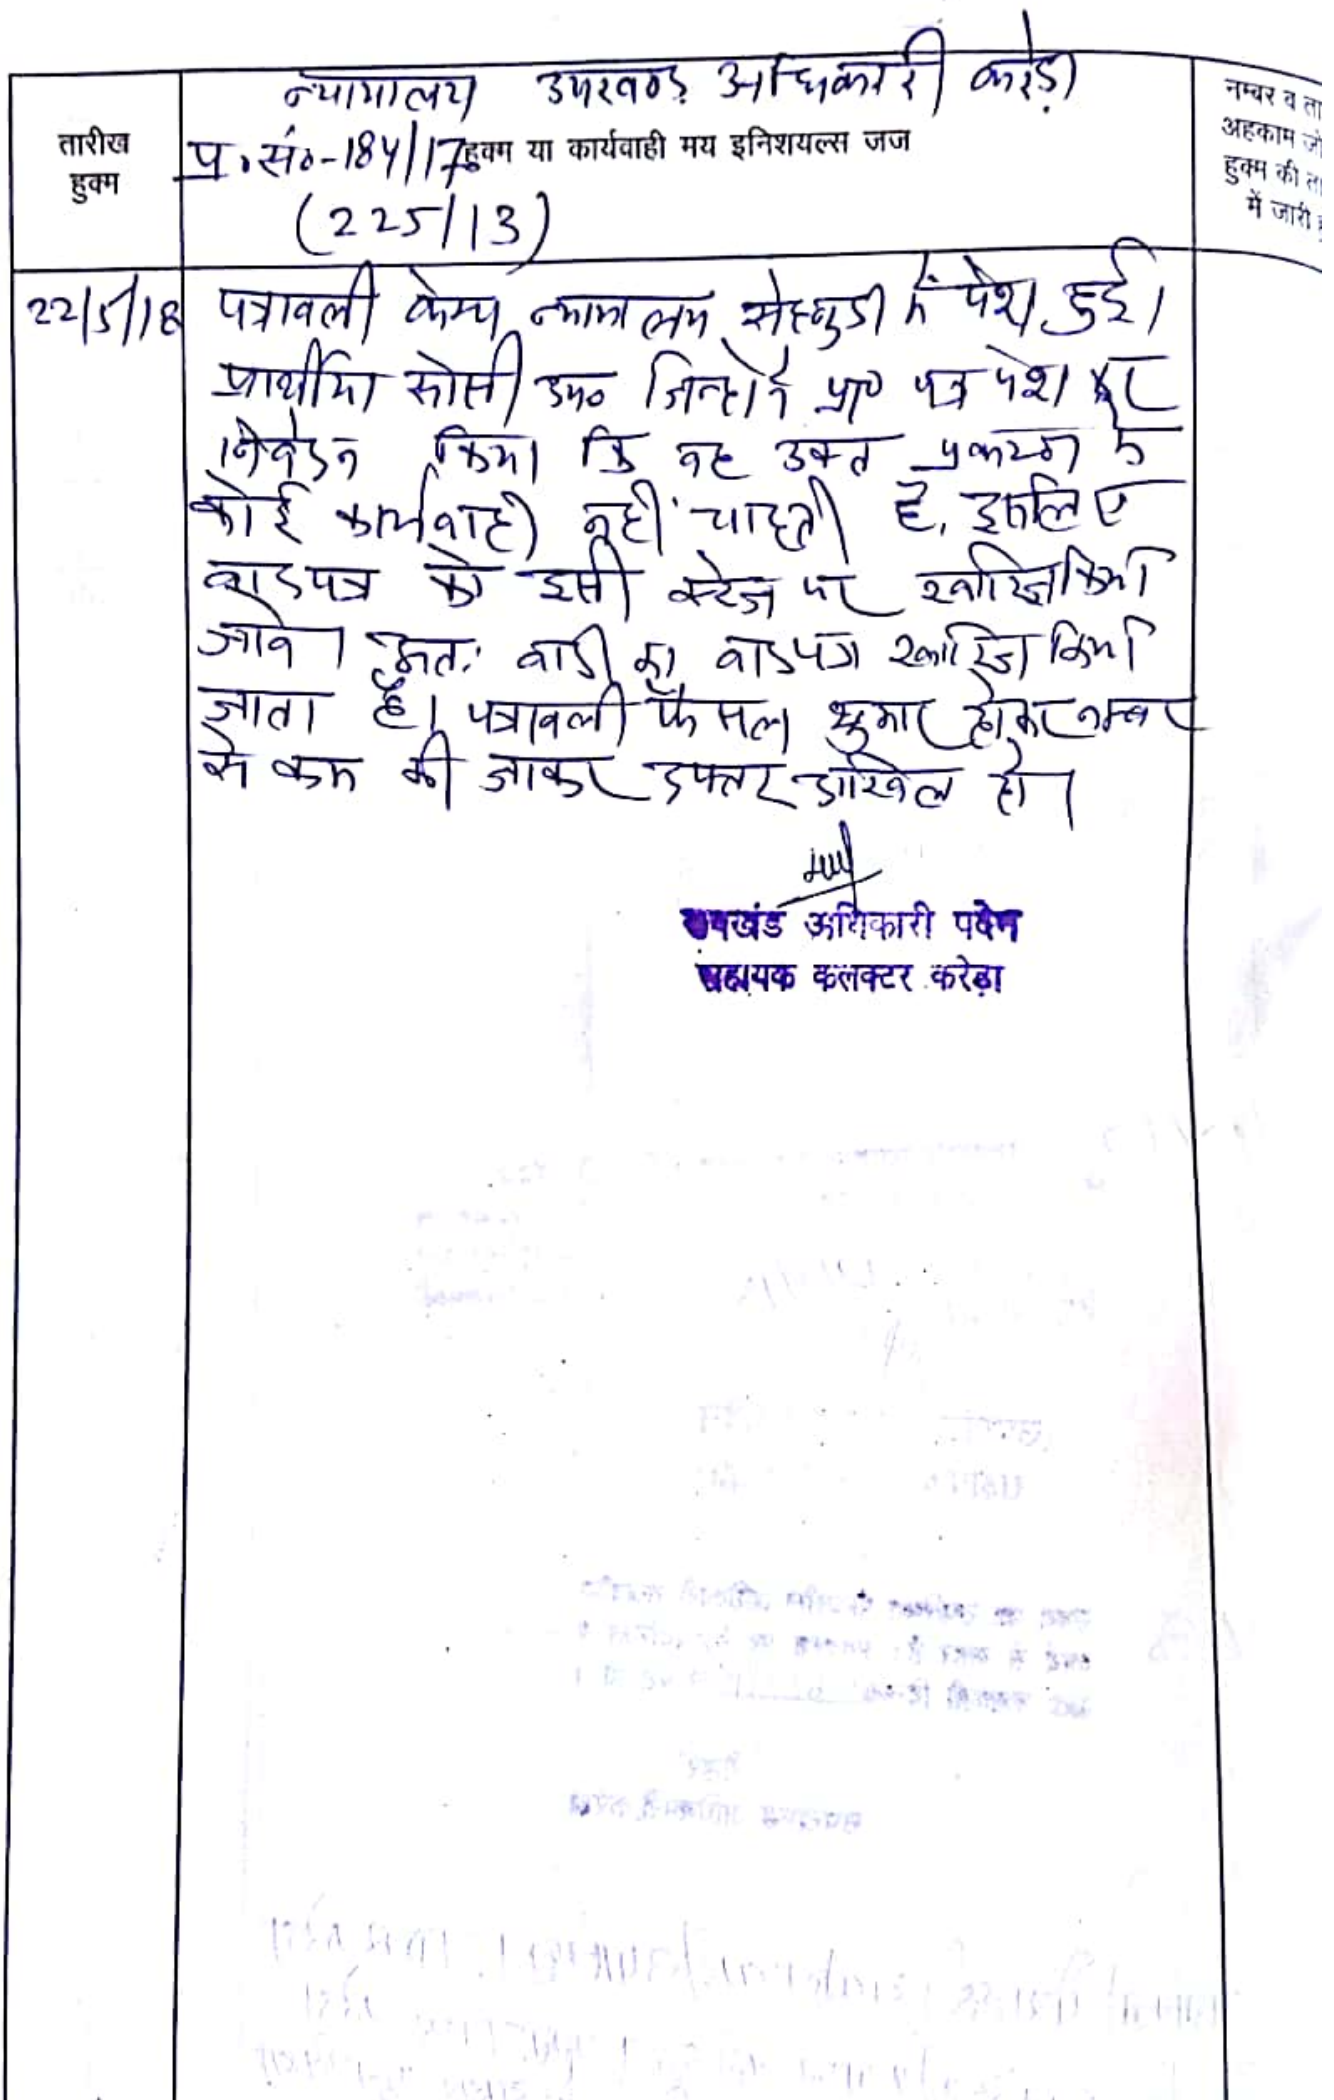 न्यायालय उपखण्ड अधिकारी करेड़ा
तारीख
हुक्म
प्र.सं०-184/17
हुक्म या कार्यवाही मय इनिशयल्स जज
(225/13)
नम्बर व ता
अहकाम जो
हुक्म की ता
में जारी हु
22/5/18
पत्रावली केम्प न्यायालय में पेश हुई।
प्रार्थीया सोसी उप० जिन्होने प्रा० पत्र पेश कर
निवेदन किया कि वह उक्त प्रकरण में
कोई कार्यवाही नहीं चाहती है, इसलिए
वादपत्र को इसी स्टेज पर खारिज किया
जावे। अतः वादी का वादपत्र खारिज किया
जाता है। पत्रावली फैसल शुमार होकर नम्बर
से कम की जाकर दफ्तर दाखिल हो।
उपखंड अधिकारी पदेन
सहायक कलक्टर करेड़ा